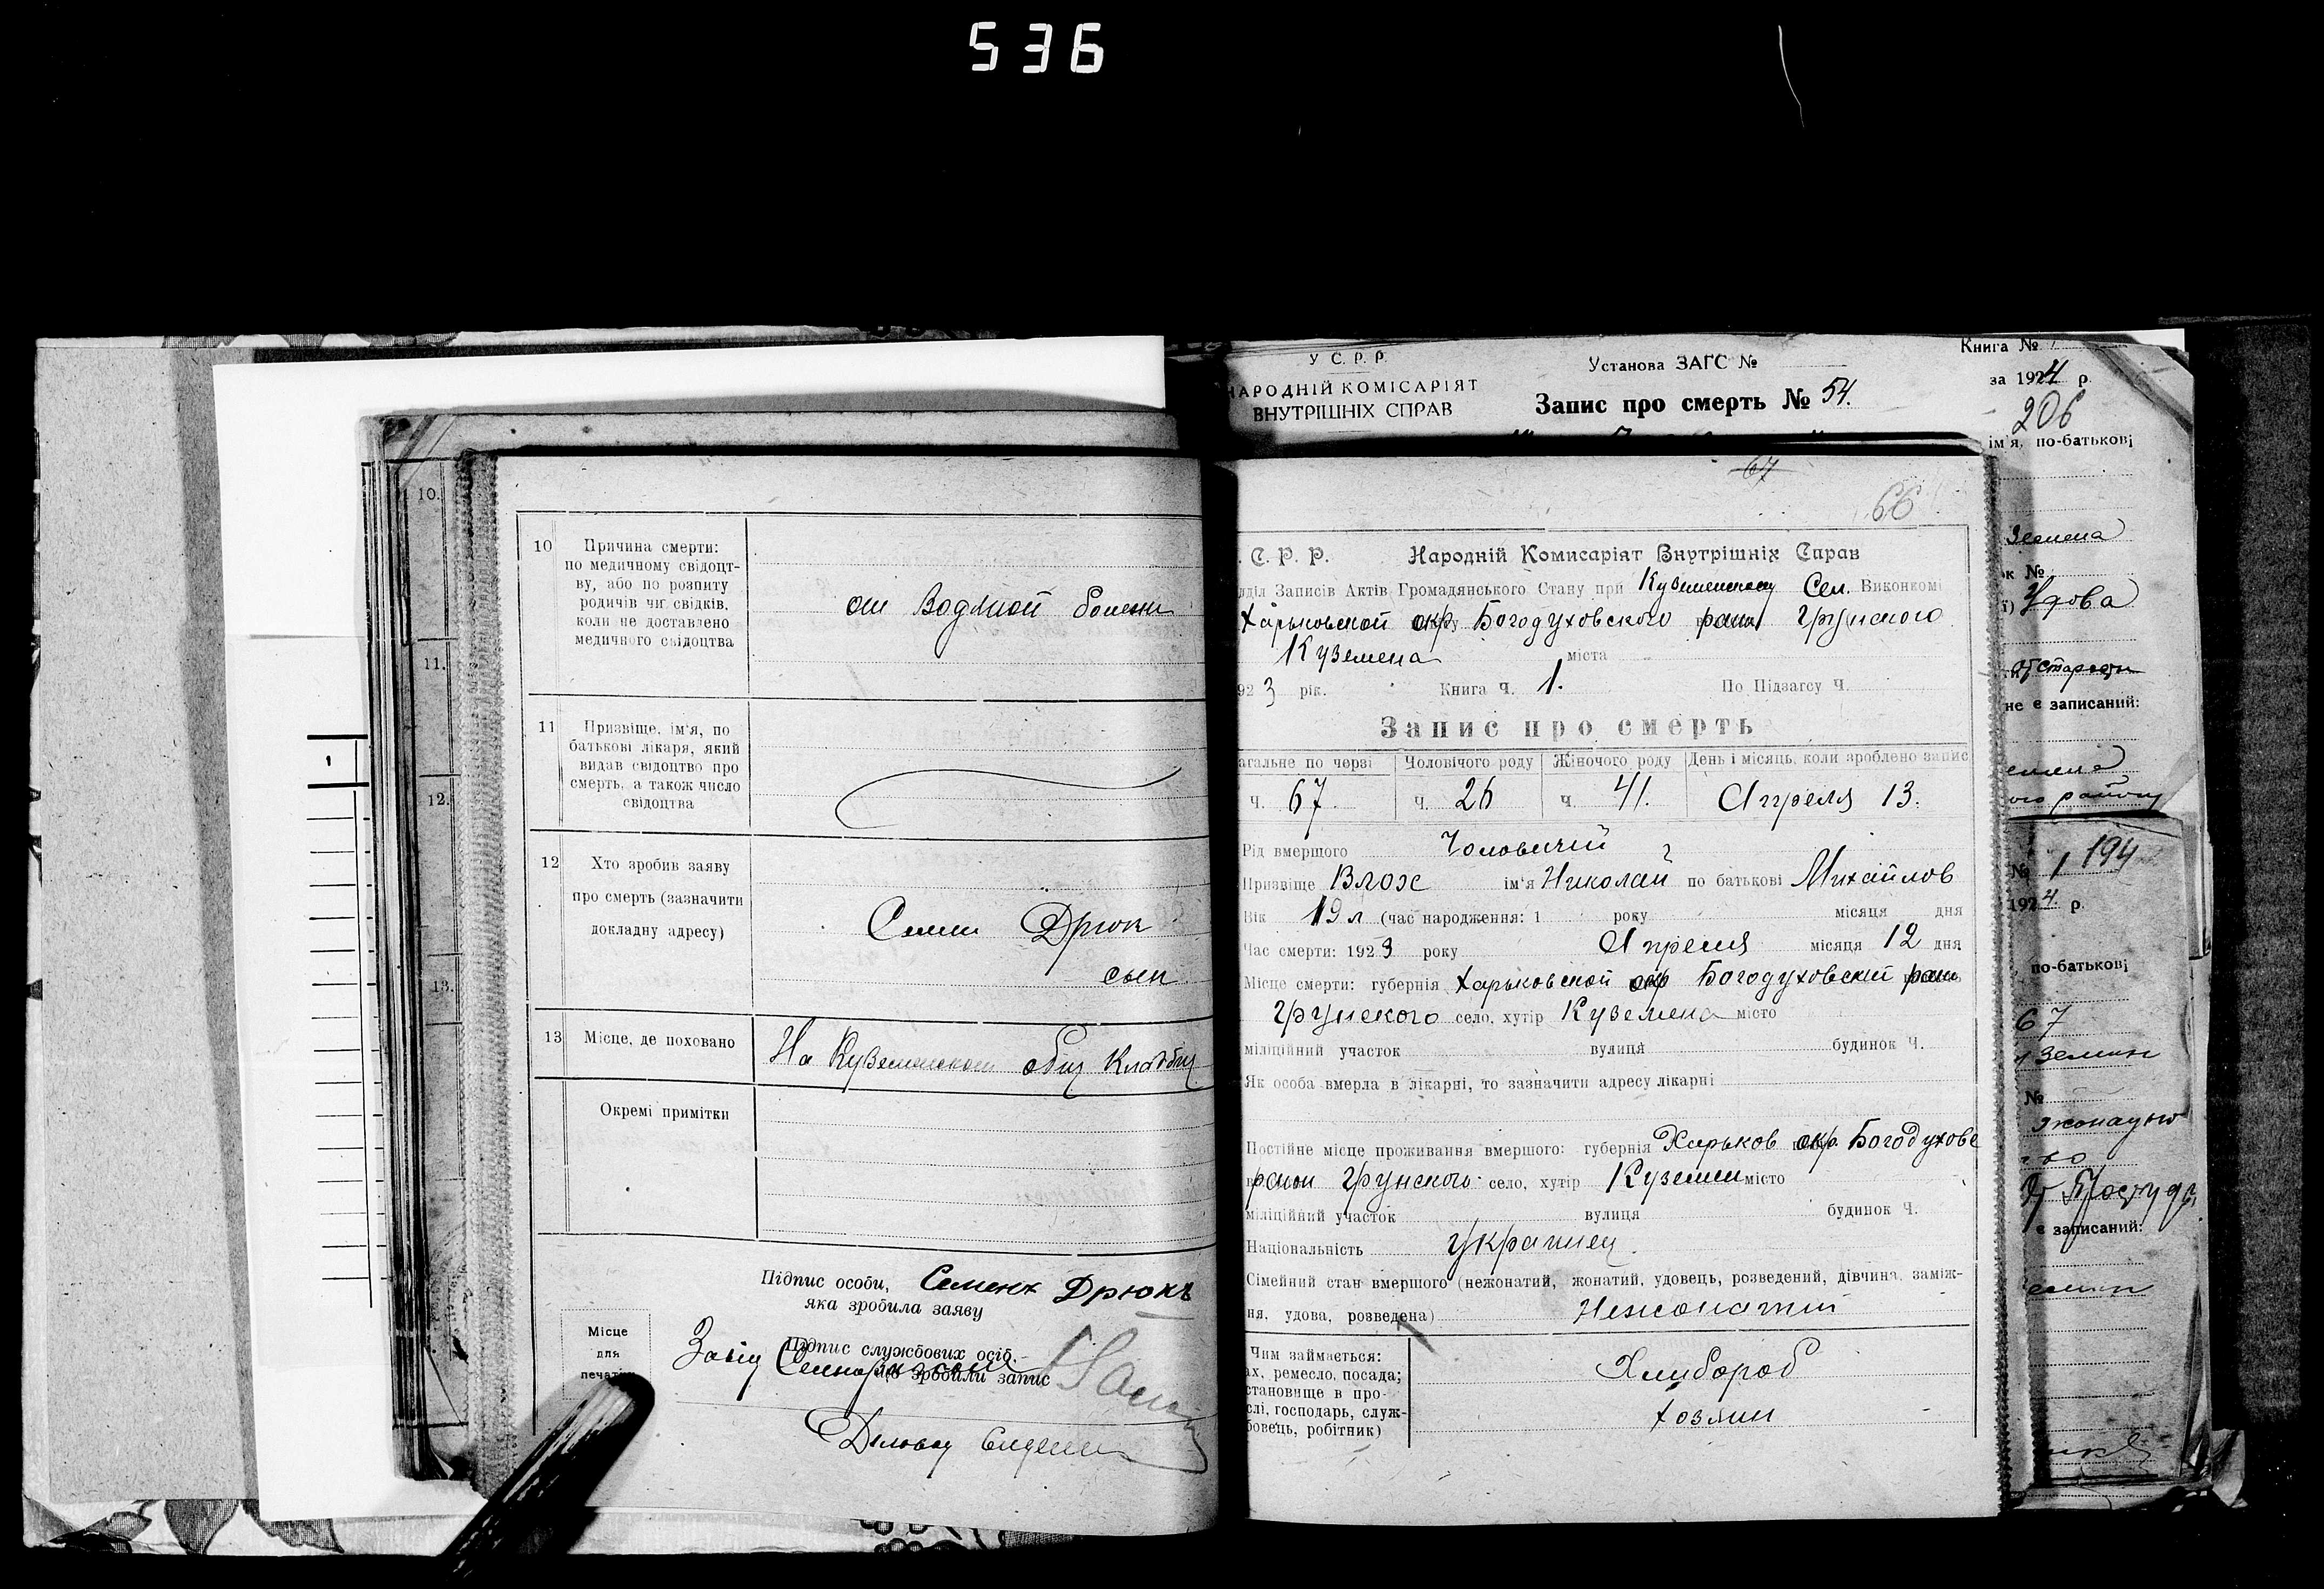 536
10.
11.
12.
13.
10 Причина смерти:
по медичному свідоцт-
ву, або по розпиту
родичів чи свідків,
коли не доставлено
медичного свідоцтва
от Водяной болезни
11 Призвіще, ім'я, по
батькові лікаря, який
видав свідоцтво про
смерть, а також число
свідоцтва
12 Хто зробив заяву
про смерть (зазначити
докладну адресу)
Семен Дрюк
сын
13 Місце, де поховано
На Куземенском общ Кладбищ
Окремі примітки
Підпис особи, Семенъ Дрюкъ
яка зробила заяву
Місце
для
печатки
Підпис службових осіб,
що зробили запис
Завід
Діловод
У С. Р. Р.
НАРОДНІЙ КОМІСАРІЯТ
ВНУТРІШНІХ СПРАВ
Установа ЗАГС №
Запис про смерть № 54.
Книга №
за 1924 р.
206
ім'я, по-батькові
67
66
. С. Р. Р. Народній Комисаріят Внутрішніх Справ
відділ Записів Актів Громадянського Стану при Куземенському Сел. Виконкомі
Харьковской окр Богодуховского раиа Грунского
Куземена міста
923 рік. Книга Ч. 1. По Підзагсу Ч.
Запис про смерть
агальне по черзі Чоловічого роду Жіночого роду День і місяць, коли зроблено запис
Ч. 67. Ч. 26 Ч. 41. Апреля 13.
Рід вмершого Чоловичій
Призвіще Влох ім'я Николай по батькові Михайлов
Вік 19 л (час народження: 1 року місяця дня
Час смерти: 1923 року Апреля місяця 12 дня
Місце смерти: губернія Харьковской окр Богодуховский раи
Грунского село, хутір Куземена місто
міліційний участок вулиця будинок Ч.
Як особа вмерла в лікарні, то зазначити адресу лікарні
Постійне місце проживання вмершого: губернія Харьков окр. Богодухове
раион Грунского село, хутір Куземен місто
міліційний участок вулиця будинок Ч.
Національність Украинец
Сімейний стан вмершого (нежонатий, жонатий, удовець, розведений, дівчина, заміж-
ня, удова, розведена) Нежонатий
Чим займається:
ах, ремесло, посада;
становище в про-
слі, господарь, служ-
бовець, робітник)
Хлибороб
хозяин
к №
Удова
От Старости
не є записаний:
№ 1 194
1924 р.
по-батькові
67
№
є записаний: